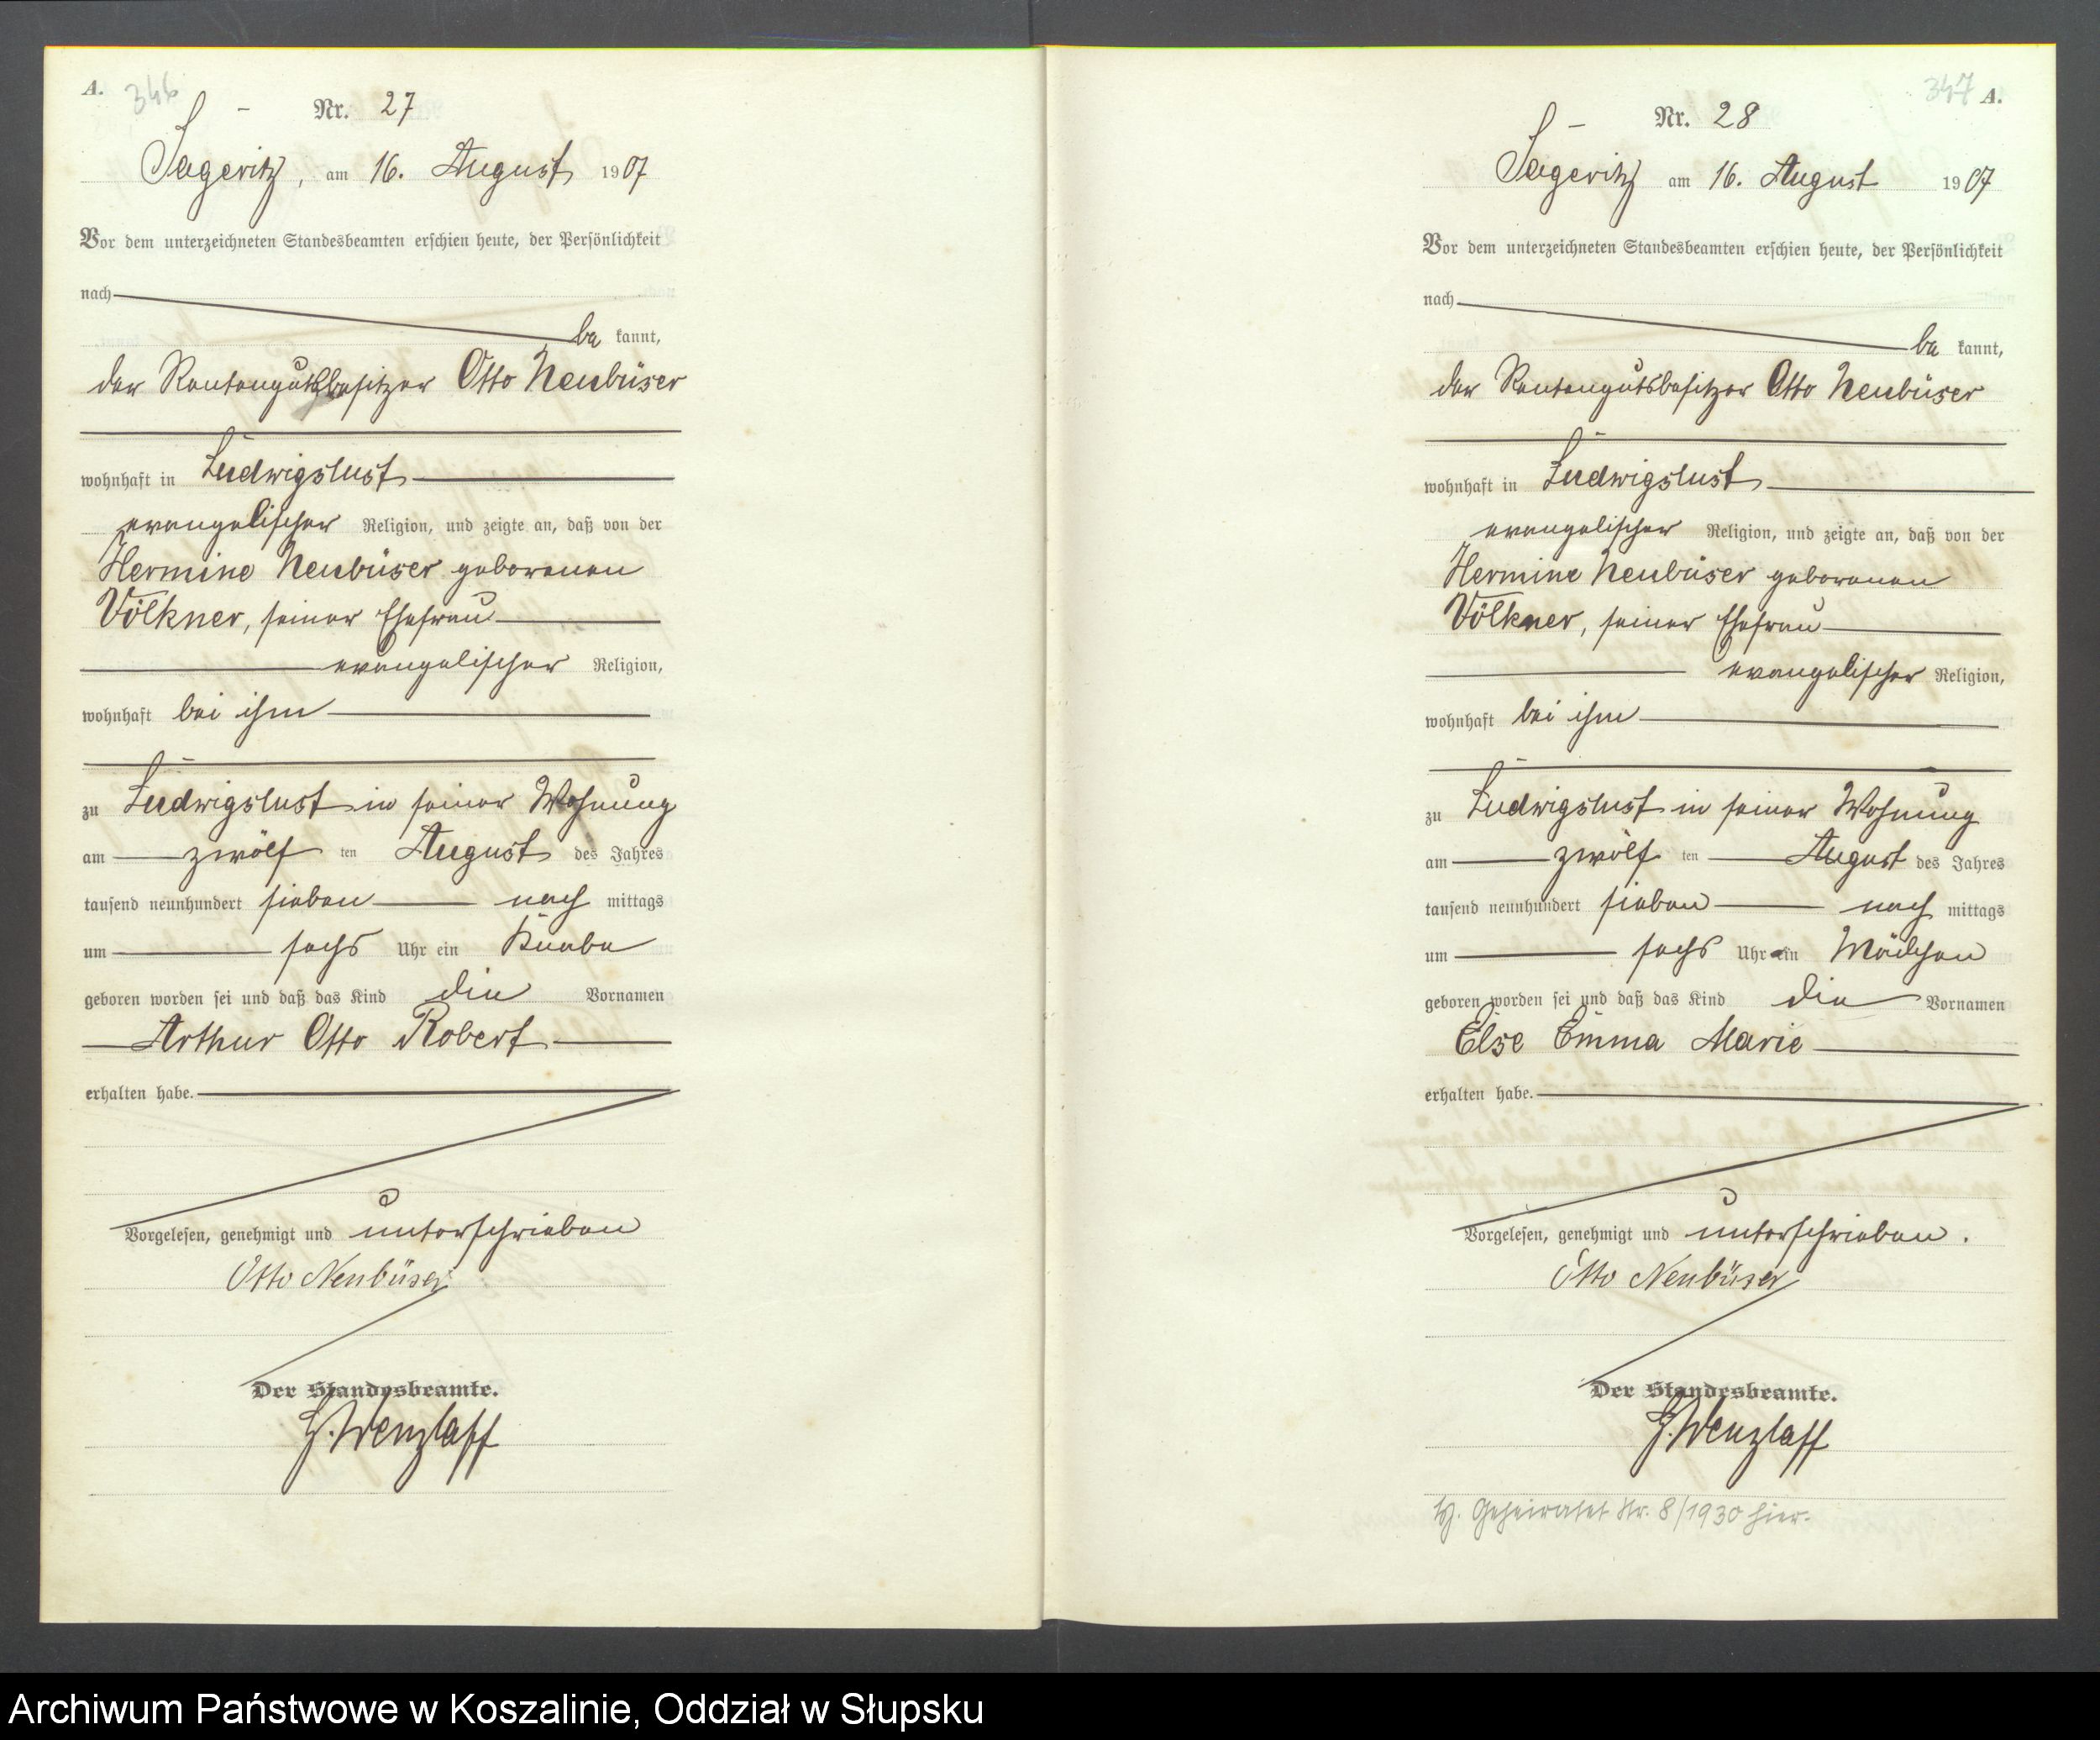 A.
346
Nr. 27
Sageritz, am 16. August 1907
Vor dem unterzeichneten Standesbeamten erschien heute, der Persönlichkeit
nach
be kannt,
der Rentengutsbesitzer Otto Neubüser
wohnhaft in Ludwigslust
evangelischer Religion, und zeigte an, daß von der
Hermine Neubüser geborenen
Völkner, seiner Ehefrau
evangelischer Religion,
wohnhaft bei ihm
zu Ludwigslust in seiner Wohnung
am zwölf ten August des Jahres
tausend neunhundert sieben nach mittags
um sechs Uhr ein Knabe
geboren worden sei und daß das Kind die Vornamen
Arthur Otto Robert
erhalten habe.
Vorgelesen, genehmigt und unterschrieben
Otto Neubüser
Der Standesbeamte.
H. Wenzlaff
347 A.
Nr. 28
Sageritz am 16. August 1907
Vor dem unterzeichneten Standesbeamten erschien heute, der Persönlichkeit
nach
be kannt,
der Rentengutsbesitzer Otto Neubüser
wohnhaft in Ludwigslust
evangelischer Religion, und zeigte an, daß von der
Hermine Neubüser geborenen
Völkner, seiner Ehefrau
evangelischer Religion,
wohnhaft bei ihm
zu Ludwigslust in seiner Wohnung
am zwölf ten August des Jahres
tausend neunhundert sieben nach mittags
um sechs Uhr ein Mädchen
geboren worden sei und daß das Kind die Vornamen
Else Emma Marie
erhalten habe.
Vorgelesen, genehmigt und unterschrieben.
Otto Neubüser
Der Standesbeamte.
H. Wenzlaff
Geheiratet Nr. 8/1930 hier.
Archiwum Państwowe w Koszalinie, Oddział w Słupsku